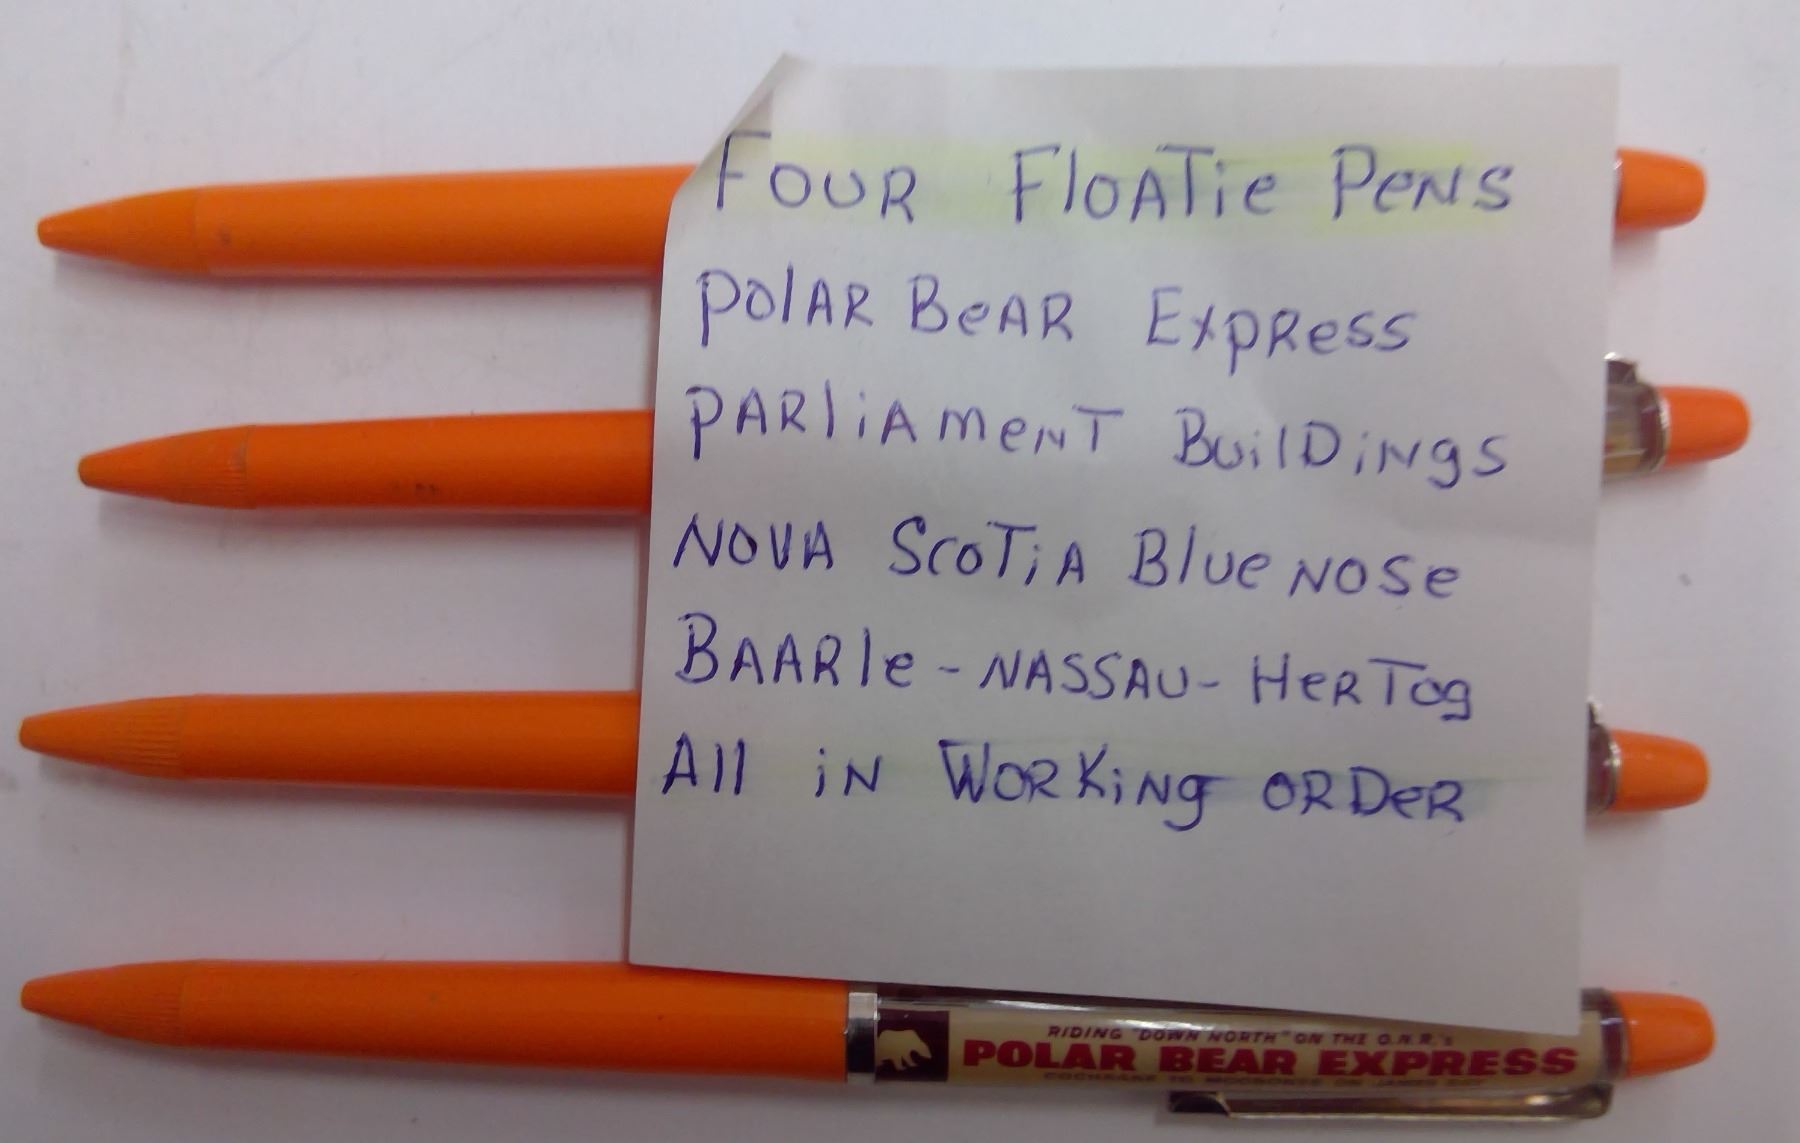 Four Floatie Pens
Polar Bear Express
Parliament Buildings
Nova Scotia Blue Nose
Baarle-Nassau-Hertog
All in Working Order
RIDING "DOWN NORTH" ON THE O.N.R.'s
POLAR BEAR EXPRESS
COCHRANE TO MOOSONEE ON JAMES BAY